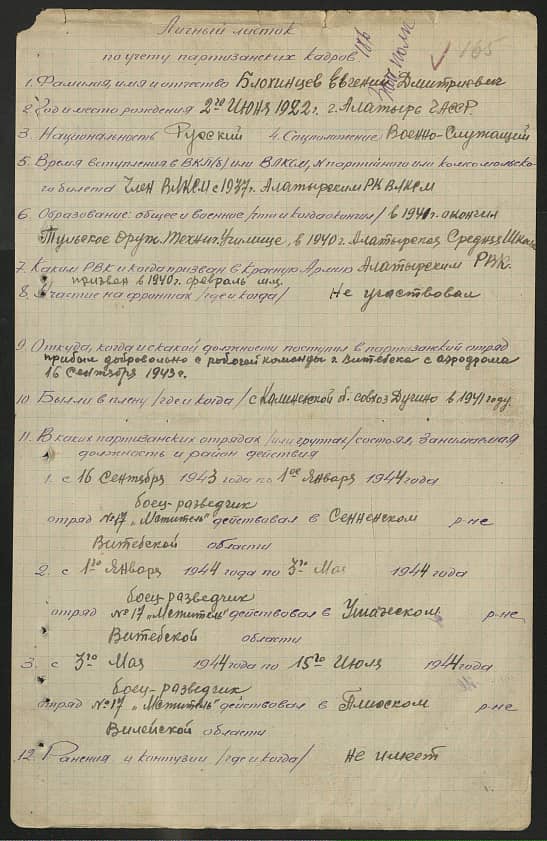 Личный листок
по учету партизанских кадров
165
1. Фамилия, имя и отчество Блохинцев Евгений Дмитриевич
2. Год и место рождения 2го Июня 1922г. г. Алатырь ЧАССР.
3. Национальность Русский 4. Соцположение Военно-Служащий
5. Время вступления в ВКП(б) или ВЛКСМ, № партийного или комсомольско-
го билета Член ВЛКСМ с 1937г. Алатырским РК ВЛКСМ
6. Образование: общее и военное /что и когда окончил/ в 1941г. окончил
Тульское Оруж. Технич. Училище, в 1940г. Алатырская Средняя Школа
7. Каким РВК и когда призван в Красную Армию Алатырским РВК.
призван в 1940г. февраль м-ц.
8. Участие на фронтах /где и когда/ Не участвовал
9. Откуда, когда и с какой должности поступил в партизанский отряд
прибыл добровольно с рабочей команды г. Витебска с аэродрома
16 Сентября 1943г.
10. Были в плену /где и когда/ с Калининской о. совхоз Дугино в 1941 году
11. В каких партизанских отрядах /или группах/ состоял, занимаемая
должность и район действия
1. с 16 Сентября 1943 года по 1ое Января 1944 года
боец-разведчик
отряд №17 „Мститель" действовал в Сенненском р-не
Витебской области
2. с 1го Января 1944 года по 3го Мая 1944 года
боец-разведчик
отряд №17 „Мститель" действовал в Ушачском р-не
Витебской области
3. с 3го Мая 1944 года по 15го Июля 1944 года
боец-разведчик
отряд №17 „Мститель" действовал в Плисском р-не
Вилейской области
12. Ранения и контузии /где и когда/ Не имеет